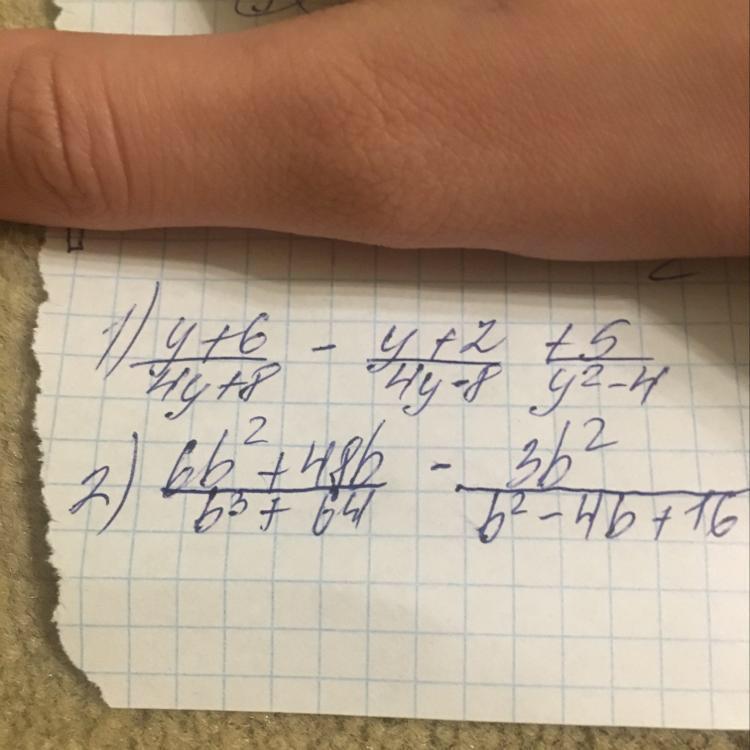 1) \frac{y+6}{4y+8} - \frac{y+2}{4y-8} \frac{+5}{y^2-4}
2) \frac{6b^2+48b}{b^3+64} - \frac{3b^2}{b^2-4b+16}